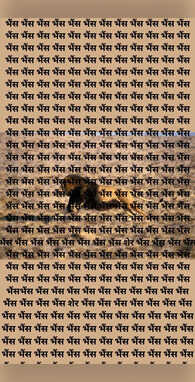 भैंस भैंस भैंस भैंस भैंस भैंस भैंस भैंस भैंस भैंस भैंस भैंस
भैंस भैंस भैंस भैंस भैंस भैंस भैंस भैंस भैंस भैंस भैंस भैंस
भैंस भैंस भैंस भैंस भैंस भैंस भैंस भैंस भैंस भैंस भैंस भैंस
भैंस भैंस भैंस भैंस भैंस भैंस भैंस भैंस भैंस भैंस भैंस भैंस
भैंस भैंस भैंस भैंस भैंस भैंस भैंस भैंस भैंस भैंस भैंस भैंस
भैंस भैंस भैंस भैंस भैंस भैंस भैंस भैंस भैंस भैंस भैंस भैंस
भैंस भैंस भैंस भैंस भैंस भैंस भैंस भैंस भैंस भैंस भैंस भैंस
भैंस भैंस भैंस भैंस भैंस भैंस भैंस भैंस भैंस भैंस भैंस भैंस
भैंस भैंस भैंस भैंस भैंस भैंस भैंस भैंस भैंस भैंस भैंस भैंस
भैंस भैंस भैंस भैंस भैंस भैंस भैंस भैंस भैंस भैंस भैंस भैंस
भैंस भैंस भैंस भैंस भैंस भैंस भैंस भैंस भैंस भैंस भैंस भैंस
भैंस भैंस भैंस भैंस भैंस भैंस भैंस भैंस भैंस भैंस भैंस भैंस
भैंस भैंस भैंस भैंस भैंस भैंस भैंस भैंस भैंस भैंस भैंस भैंस
भैंस भैंस भैंस भैंस भैंस भैंस भैंस भैंस भैंस भैंस
भैंस भैंस भैंस भैंस भैंस भैंस भैंस भैंस भैंस भैंस
भैंस भैंस भैंस भैंस भैंस भैंस भैंस भैंस भैंस भैंस
भैंस भैंस भैंस भैंस भैंस भैंस भैंस भैंस भैंस भैंस भैंस भैंस
भैंस भैंस भैंस भैंस भैंस भैंस भैंस भैंस भैंस भैंस भैंस भैंस
भैंस भैंस भैंस भैंस भैंस भैंस भैंस भैंस शेर भैंस भैंस भैंस
भैंस भैंस भैंस भैंस भैंस भैंस भैंस भैंस भैंस भैंस भैंस भैंस
भैंस भैंस भैंस भैंस भैंस भैंस भैंस भैंस भैंस भैंस भैंस भैंस
भैंस भैंस भैंस भैंस भैंस भैंस भैंस भैंस भैंस भैंस भैंस भैंस
भैंसभैंस भैंस भैंस भैंस भैंस भैंस भैंस भैंस भैंस भैंस भैंस
भैंस भैंस भैंस भैंस शेर भैंस भैंस भैंस भैंस भैंस भैंस भैंस
भैंस भैंस भैंस भैंस भैंस भैंस भैंस भैंस भैंस भैंस भैंस भैंस
भैंस भैंस भैंस भैंस भैंस भैंस भैंस भैंस भैंस भैंस भैंस भैंस
भैंस भैंस भैंस भैंस भैंस भैंस भैंस भैंस भैंस भैंस भैंस भैंस
भैंस भैंस भैंस भैंस भैंस भैंस भैंस भैंस भैंस भैंस भैंस भैंस